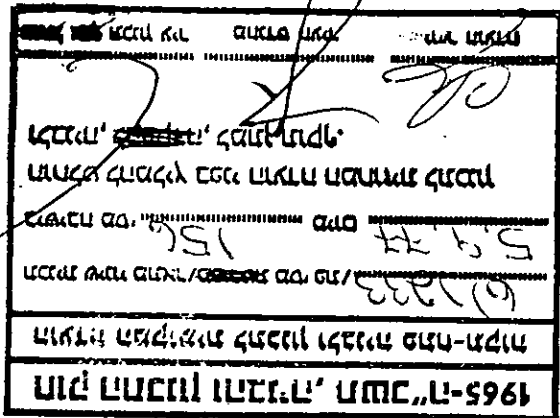 חוק התכנון והבניה, תשכ"ה-1965
הועדה המקומית לתכנון ולבניה פתח-תקוה
תכנית שינוי מתאר/ מס' פת/ 1233/6
בישיבה מס': 156 מיום 5.9.77
הוחלט להמליץ בפני הועדה המחוזית לתכנון
ולבניה, למתן תוקף.
מהנדס העיר